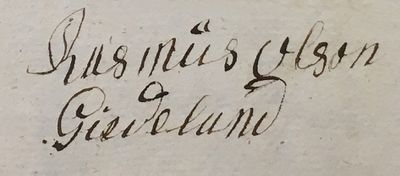 Rasmüs Olson
Giedeland